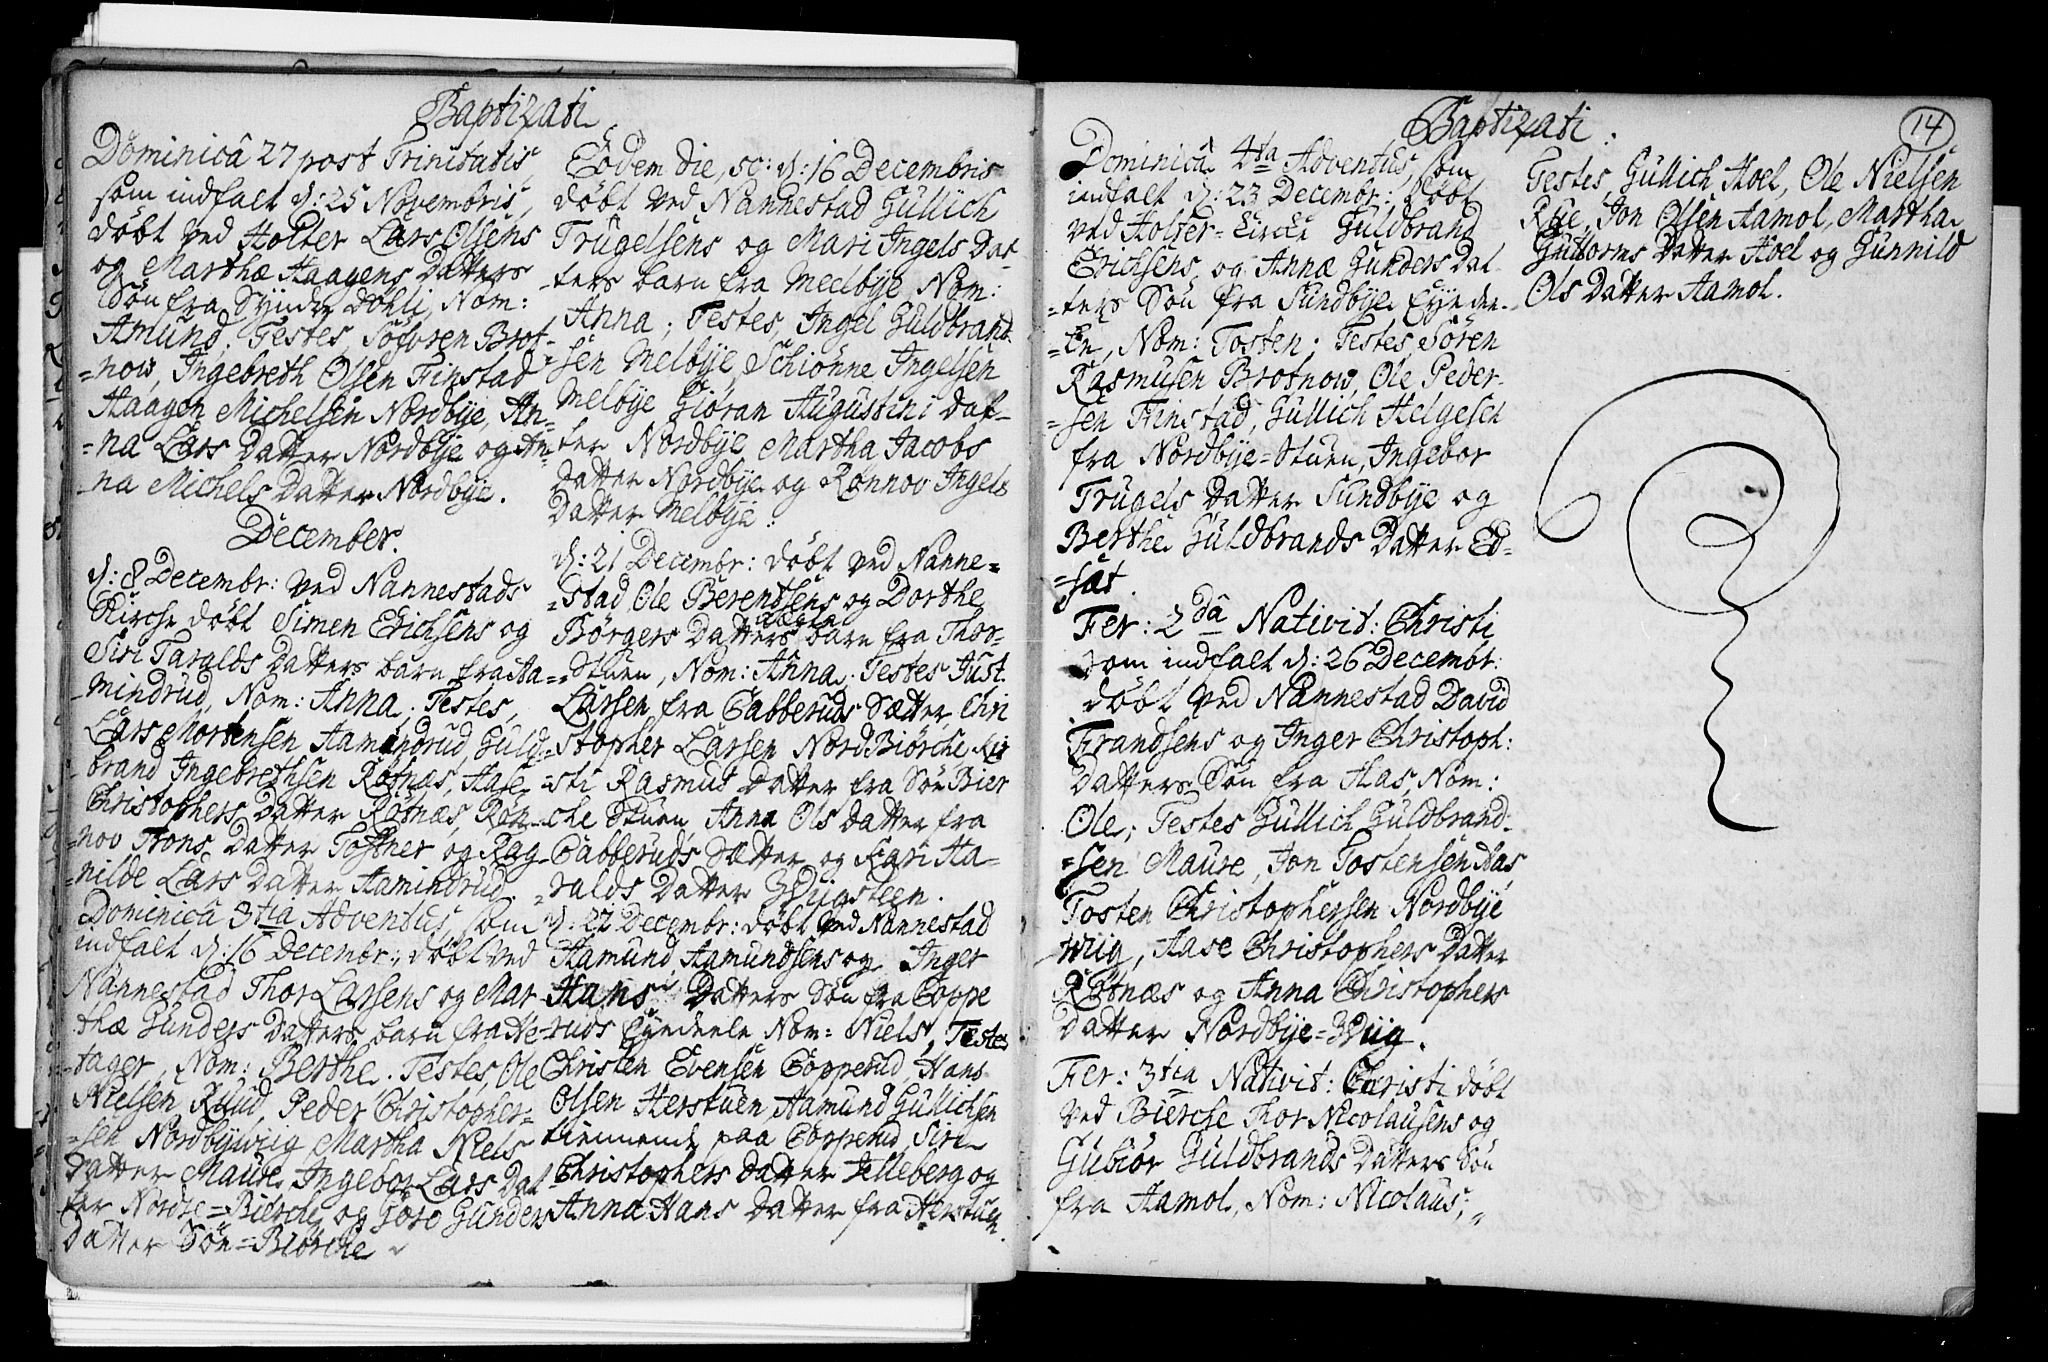 Baptizati
Dominicâ 27 post Trinitatis,
som indfalt d: 25 Novembris,
döbt ved Holter Lars Olsens
og Marthæ Haagens Datters
Sön fra Dohli, Nom:
Amund. Testes, Brot-
=now, Ingebreth Olsen Finstad
Haagen Michelsen Nordbÿe, An-
=na Lars Datter Nordbÿe og An-
na Michels Datter Nordbÿe.
December.
d: 8 Decembr: ved Nannestads
Kirche döbt Simen Erichsens og
Siri Taralds Datters barn fra Aa-
mindrud, Nom: Anna. Testes,
Lars Mortensen Aamindrud, Guld-
brand Ingebrethsen Rötnæs, Aase
Christophers Datter Rötnæs, Rön-
=nov Datter og Rag-
=nilde Lars Datter Aamindrud.
Dominicâ 3tia Adventus, som
indfalt d: 16 Decembr: döbt ved
Nannestad Thor Larsens og Mar-
thæ Gunders Datters barn fra
tager, Nom: Berthe. Testes, Ole
Nielsen Ruud, Peder Christopher-
=sen Nordbÿwiig Martha Niels
Datter Maure, Ingebor Lars Dat
ter Nordre=Bierche og Göro Gunders
Datter Sön=Biörche
Eodem die, sc: d: 16 Decembris
döbt ved Nannestad Gullich
Trugelsens og Mari Ingels Dat-
-ters barn fra Meelbÿe, Nom:
Anna; Testes, Ingel Guldbrand-
sen Melbÿe, Schiönne Ingelsen
Melbÿe Giöran Augustini Dat-
ter Nordbÿe, Martha Jacobs
Datter Nordbÿe og Rönnov Ingels
Datter Melbÿe.
d: 21 Decembr: döbt ved Nanne-
-stad Ole Berendsens og Dorthe
Börgers Datters barn fra Thor-
=stuen, Nom: Anna. Testes Just
Larsen fra Cabberuds Sætter, Chri
stopher Larsen Nord Biörche Kir
-sti Rasmus Datter fra Sön Bier
che Stuen, Anna Ols Datter fra
Cabberuds Sætter og Kari Ha-
-ralds Datter
d: 22 Decembr: döbt ved Nannestad
Aamund Aamundsens og Inger
Hans Datters Sön fra Coppe
ruds Eÿedeele Nom: Niels, Testes
Christen Evensen Copperud, Hans
Olsen Herstuen Aamund Gullichsen
tiennende paa Copperud, Siri
Christophers Datter Jelleberg og
Anna Hans Datter fra Herstuen.
Baptizati.
14
Dominicâ 4ta Adventus, som
indfalt d: 23 Decembr: döbt
ved Holter=Kirche Guldbrand
Erichsens og Annæ Gunders Dat-
=ters Sön fra Sundbÿe Eÿedee-
=le, Nom: Tosten; Testes, Sören
Rasmusen Brotnow, Ole Peder-
=sen Finstad, Gullich Helgesen
fra Nordbÿe=Stuen, Ingebor
Trugels Datter Sundbÿe og
Berthe Guldbrands Datter Ed-
=sat.
Fer: 2da Nativit: Christi
som indfalt d: 26 Decembr:
döbt ved Nannestad David
Frandsens og Inger Christoph:
Datters Sön fra Aas, Nom:
Ole; Testes Gullich Guldbrand-
=sen Maure, Jon Tostensen Aas
Tosten Christophersen Nordbÿe
wiig, Aase Christophers Datter
Rötnæs og Anna Christophers
Datter Nordbÿe=Wiig.
Fer: 3tia Nativit: Christi döbt
ved Bierche Thor Nicolausens og
Gubiör Guldbrands Datters Sön
fra Aamol, Nom: Nicolaus;
Testes, Gullich Hoel, Ole Nielsen
Rÿe, Jon Olsen Aamol, Martha
Guttorms Datter Hoel og Gunnild
Ols Datter Aamol.